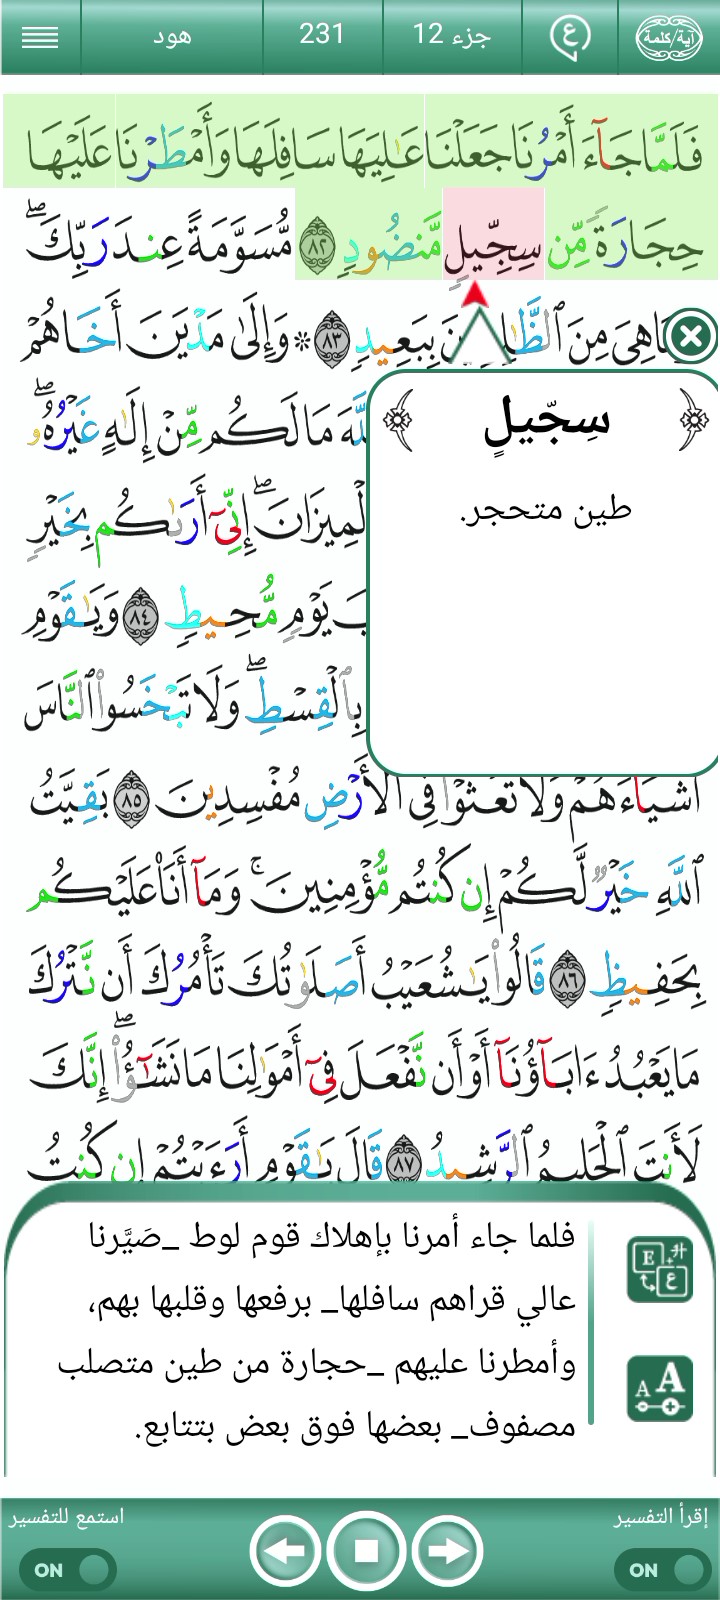 هود
231
جزء 12
ع
آية/كلمة
فَلَمَّا جَآءَ أَمْرُنَا جَعَلْنَا عَـٰلِيَهَا سَافِلَهَا وَأَمْطَرْنَا عَلَيْهَا
حِجَارَةً مِّن سِجِّيلٍ مَّنضُودٍ ٨٢ مُّسَوَّمَةً عِندَ رَبِّكَ ۖ
هِىَ مِنَ ٱلظَّـٰلِمِينَ بِبَعِيدٍ ٨٣ ۞ وَإِلَىٰ مَدْيَنَ أَخَاهُمْ
مَا لَكُم مِّنْ إِلَـٰهٍ غَيْرُهُۥ ۖ
سِجّيلٍ
طين متحجر.
إِنِّىٓ أَرَىٰكُم بِخَيْرٍ
يَوْمٍ مُّحِيطٍ ٨٤ وَيَـٰقَوْمِ
بِٱلْقِسْطِ ۖ وَلَا تَبْخَسُوا۟ ٱلنَّاسَ
أَشْيَآءَهُمْ وَلَا تَعْثَوْا۟ فِى ٱلْأَرْضِ مُفْسِدِينَ ٨٥ بَقِيَّتُ
ٱللَّهِ خَيْرٌ لَّكُمْ إِن كُنتُم مُّؤْمِنِينَ ۚ وَمَآ أَنَا۠ عَلَيْكُم
بِحَفِيظٍ ٨٦ قَالُوا۟ يَـٰشُعَيْبُ أَصَلَوٰتُكَ تَأْمُرُكَ أَن نَّتْرُكَ
مَا يَعْبُدُ ءَابَآؤُنَآ أَوْ أَن نَّفْعَلَ فِىٓ أَمْوَٰلِنَا مَا نَشَـٰٓؤُا۟ ۖ إِنَّكَ
لَأَنتَ ٱلْحَلِيمُ ٱلرَّشِيدُ ٨٧ قَالَ يَـٰقَوْمِ أَرَءَيْتُمْ إِن كُنتُ
فلما جاء أمرنا بإهلاك قوم لوط _صَيَّرنا
عالي قراهم سافلها_ برفعها وقلبها بهم،
وأمطرنا عليهم _حجارة من طين متصلب
مصفوف_ بعضها فوق بعض بتتابع.
استمع للتفسير
إقرأ التفسير
ON
ON